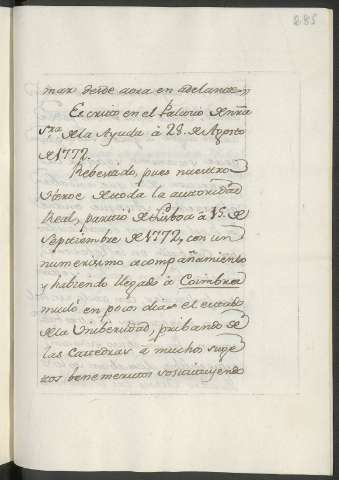 285
mar desde aora en adelante=
Escrito en el Palacio de nra
Sra de la Ayuda à 28. de Agosto
de 1772.
Rebestido, pues nuestro
Héroe de toda la autoridad
Real, partió de Lisboa à 15. de
Septiembre de 1772, con un
numerísimo acompañamiento
y habiendo llegado à Coimbra
mudó en pocos dias el estado
de la Unibersidad, pribando de
las Catedras à muchos suge
tos benemeritos sostituyendo